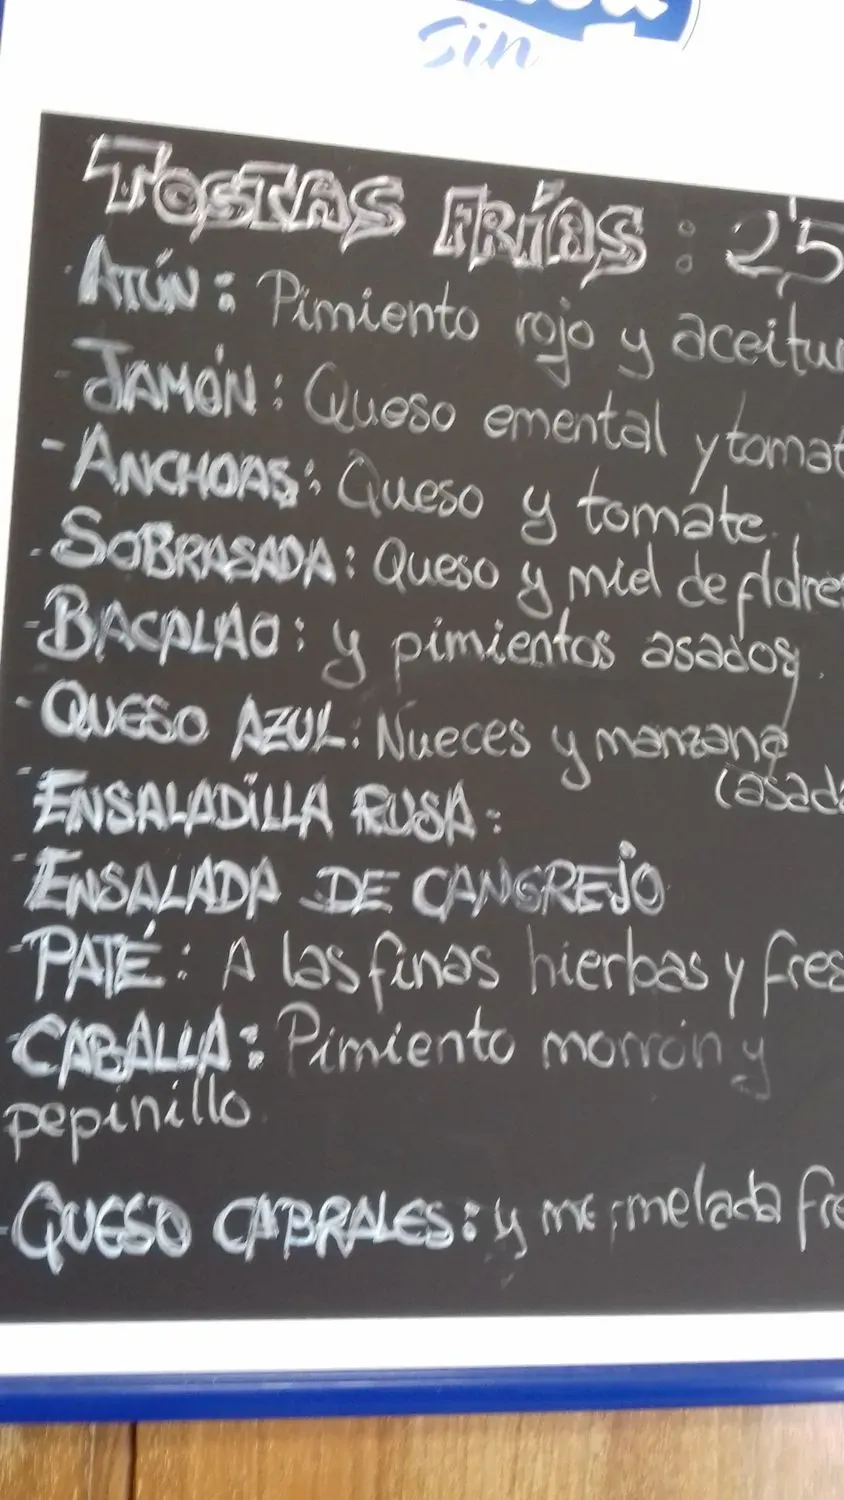 Sin
TOSTAS FRÍAS: 2'5
- ATÚN: Pimiento rojo y aceitu
- JAMÓN: Queso emental y tomat
- ANCHOAS: Queso y tomate.
- SOBRASADA: Queso y miel de flores
- BACALAO: y pimientos asados.
- QUESO AZUL: Nueces y manzana
(asada
- ENSALADILLA RUSA:
- ENSALADA DE CANGREJO
- PATÉ: A las finas hierbas y fres
- CABALLA: Pimiento morrón y
pepinillo
- QUESO CABRALES: y mermelada fre